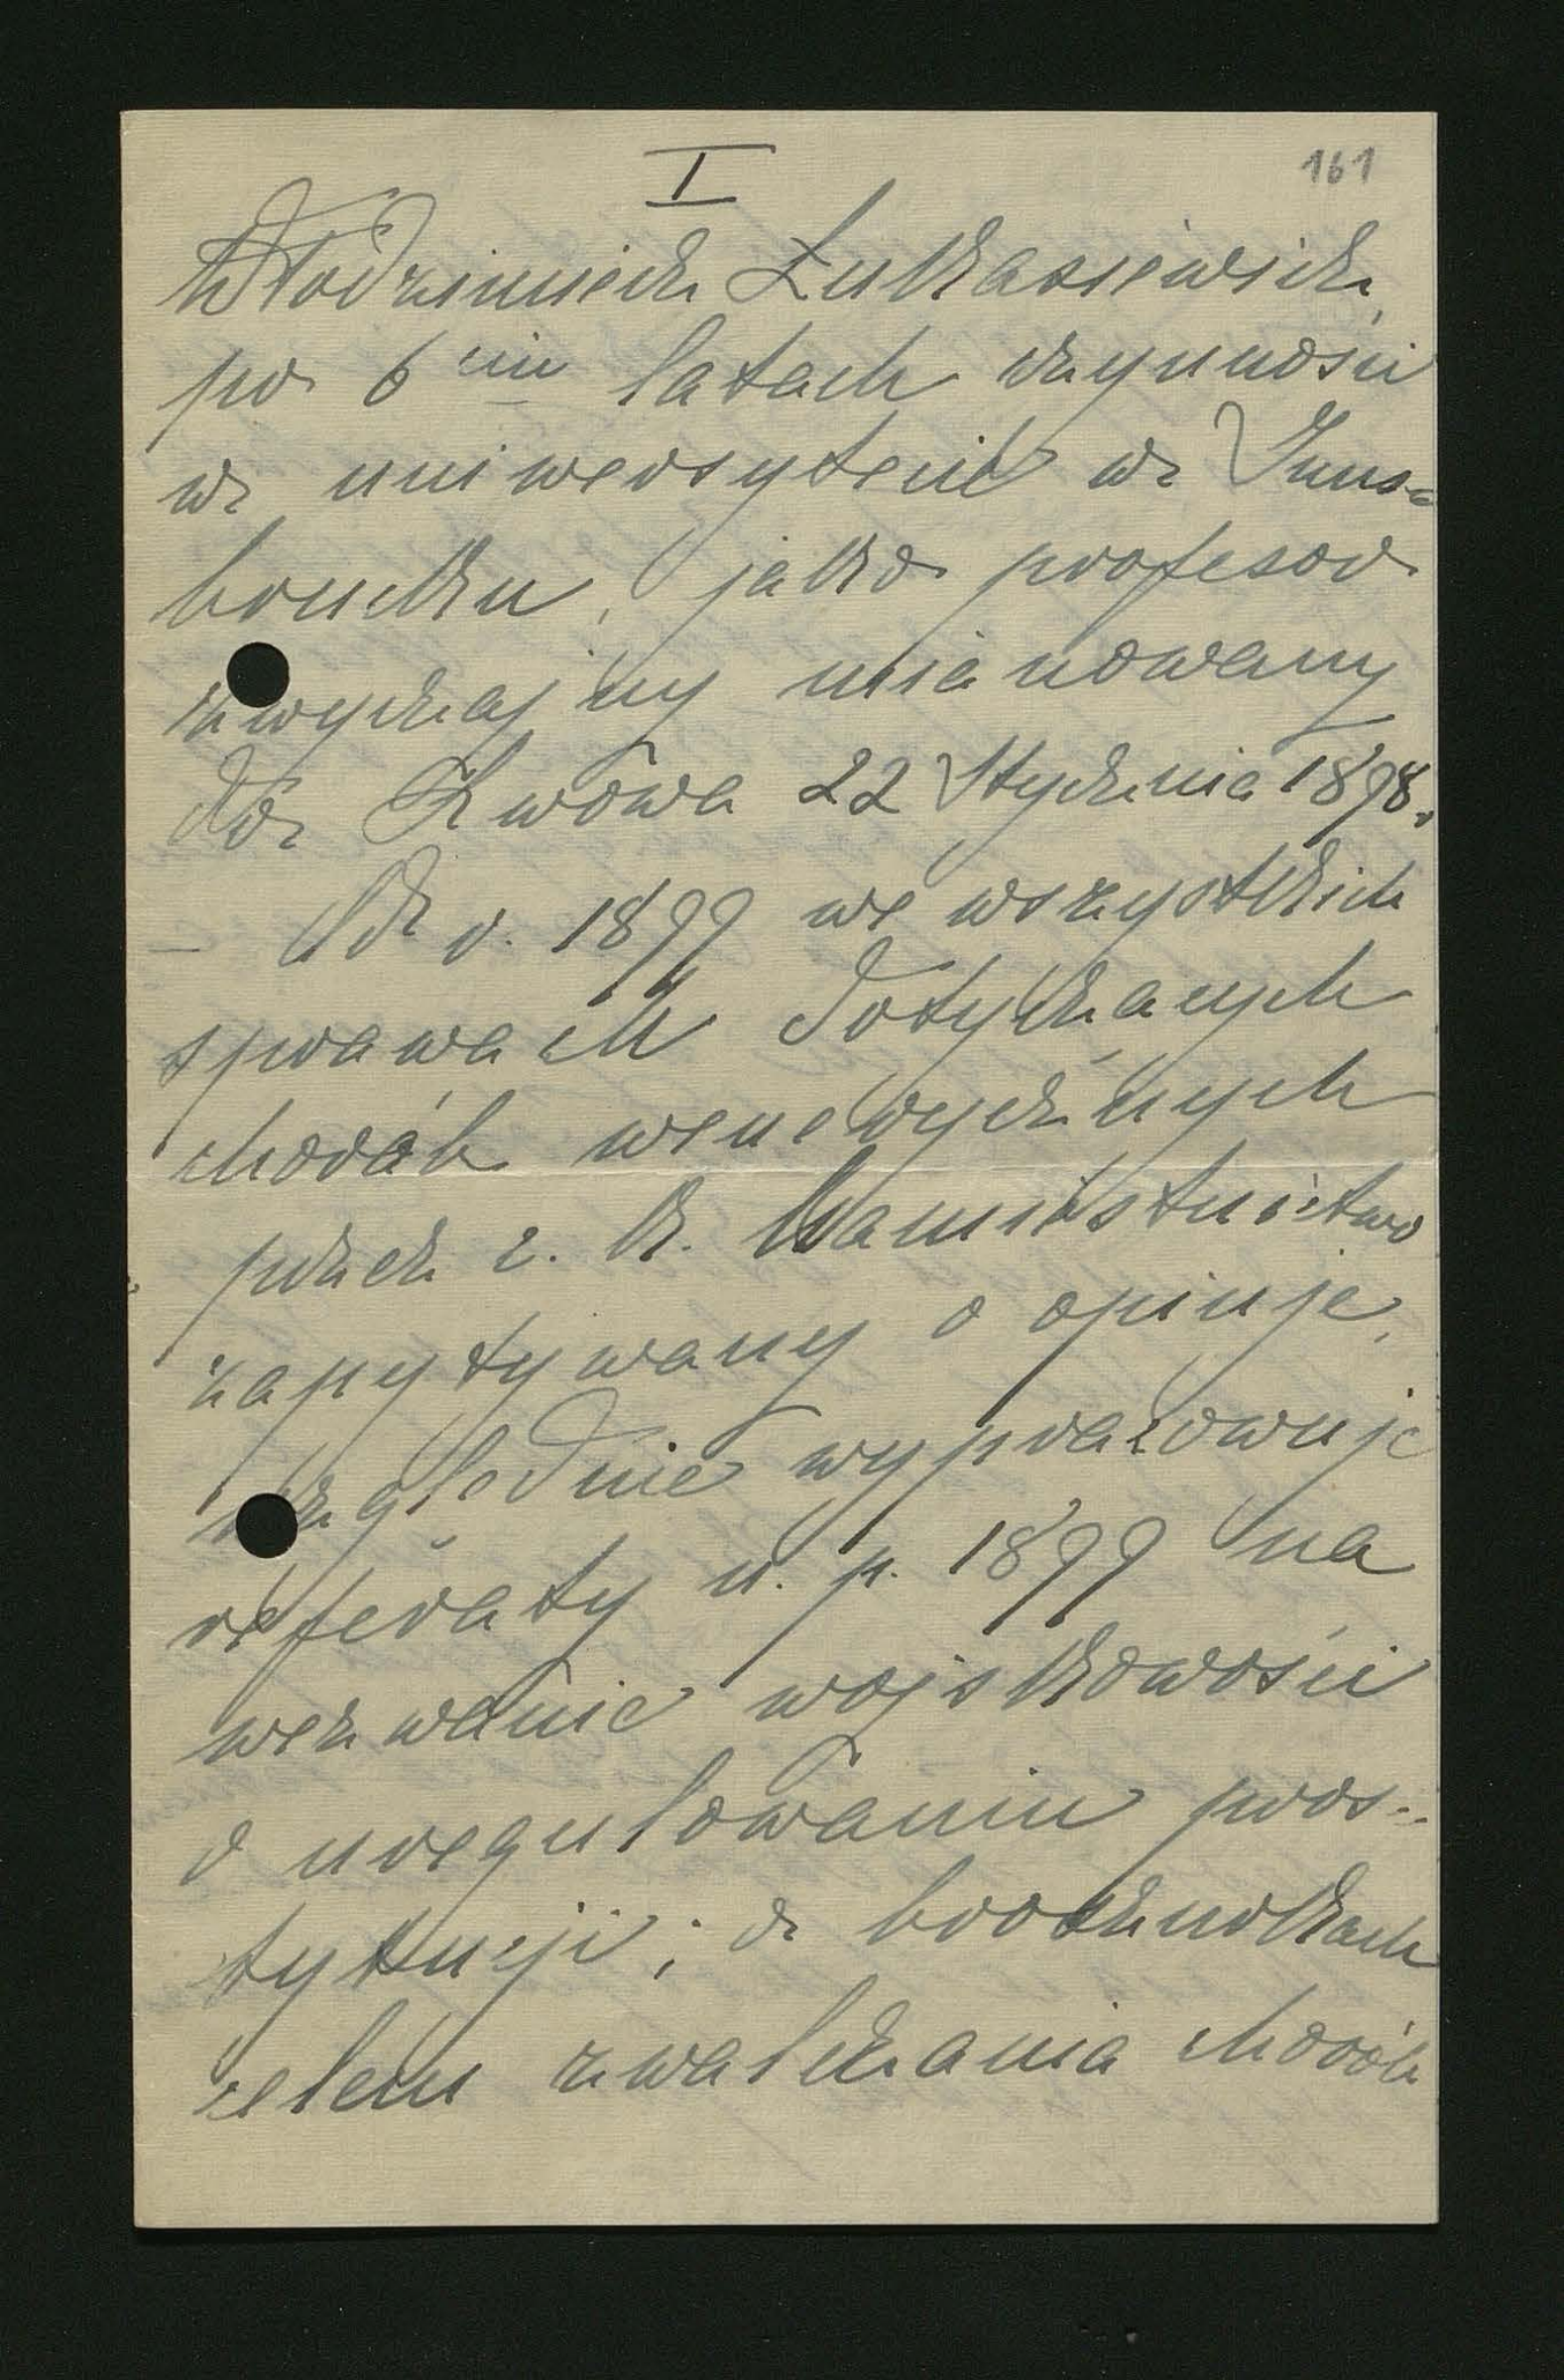 I
161
Włodzimierz Łukasiewicz,
po 6ciu latach czynności
w uniwersytecie w Inns=
brucku, jako profesor
zwyczajny mianowany
do Lwowa 22 Stycznia 1898.
– Od r. 1899 we wszystkich
sprawach dotyczących
chorób wenerycznych
przez c. k. Namiestnictwo
zapytywany o opinję,
względnie wypracowuje
referaty n. p. 1899 na
wezwanie wojskowości
o uregulowaniu pros-
tytucji; o broszurkach
celem zwalczania chorób